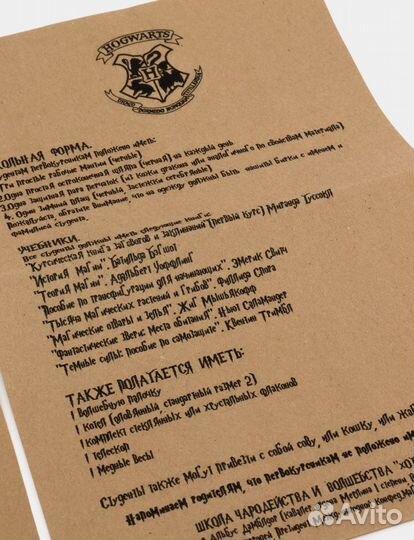 HOGWARTS
DRACO DORMIENS NUNQUAM TITILLANDUS
ОЛЬНАЯ ФОРМА.
первокурсникам положено иметь:
Три простые рабочие мантии (черные)
2.Одна простая остроконечная шляпа (черная) на каждый день
3.Одна защитных перчаток (из кожи дракона или аналогичного по свойствам материала)
4. Один зимний плащ (черный, застежки серебряные)
Пожалуйста, обратите внимание, что на одежду должны быть нашиты бирки с именем и
фамилией студента.
УЧЕБНИКИ.
Все студенты должны иметь следующие книги:
"Курсическая книга заговоров и заклинаний (первый курс) Миранда Гуссокл
"История магии". Батильда Бэгшот
"Теория магии", Адальберт Уоффлинг
"Пособие по трансфигурации для начинающих", Эмерик Свитч
"Тысяча магических растений и грибов". Филлида Спора
"Магические отвары и зелья". Жиг Мышьякофф
"Фантастические звери: места обитания". Ньют Саламандер
"Темные силы: пособие по самозащите". Квентин Тримбл
ТАКЖЕ ПОЛАГАЕТСЯ ИМЕТЬ:
1 волшебную палочку
1 котел (оловянный, стандартный размер 2)
1 комплект стеклянных или хрустальных флаконов
1 телескоп
1 медные весы
Студенты также могут привезти с собой сову, или кошку, или жаб
Напоминаем родителям, что первокурсникам не положено име
ШКОЛА ЧАРОДЕЙСТВА И ВОЛШЕБСТВА "ХО
Альбус Дамблдор (кавалер ордена Мерлина I степени,
Avito